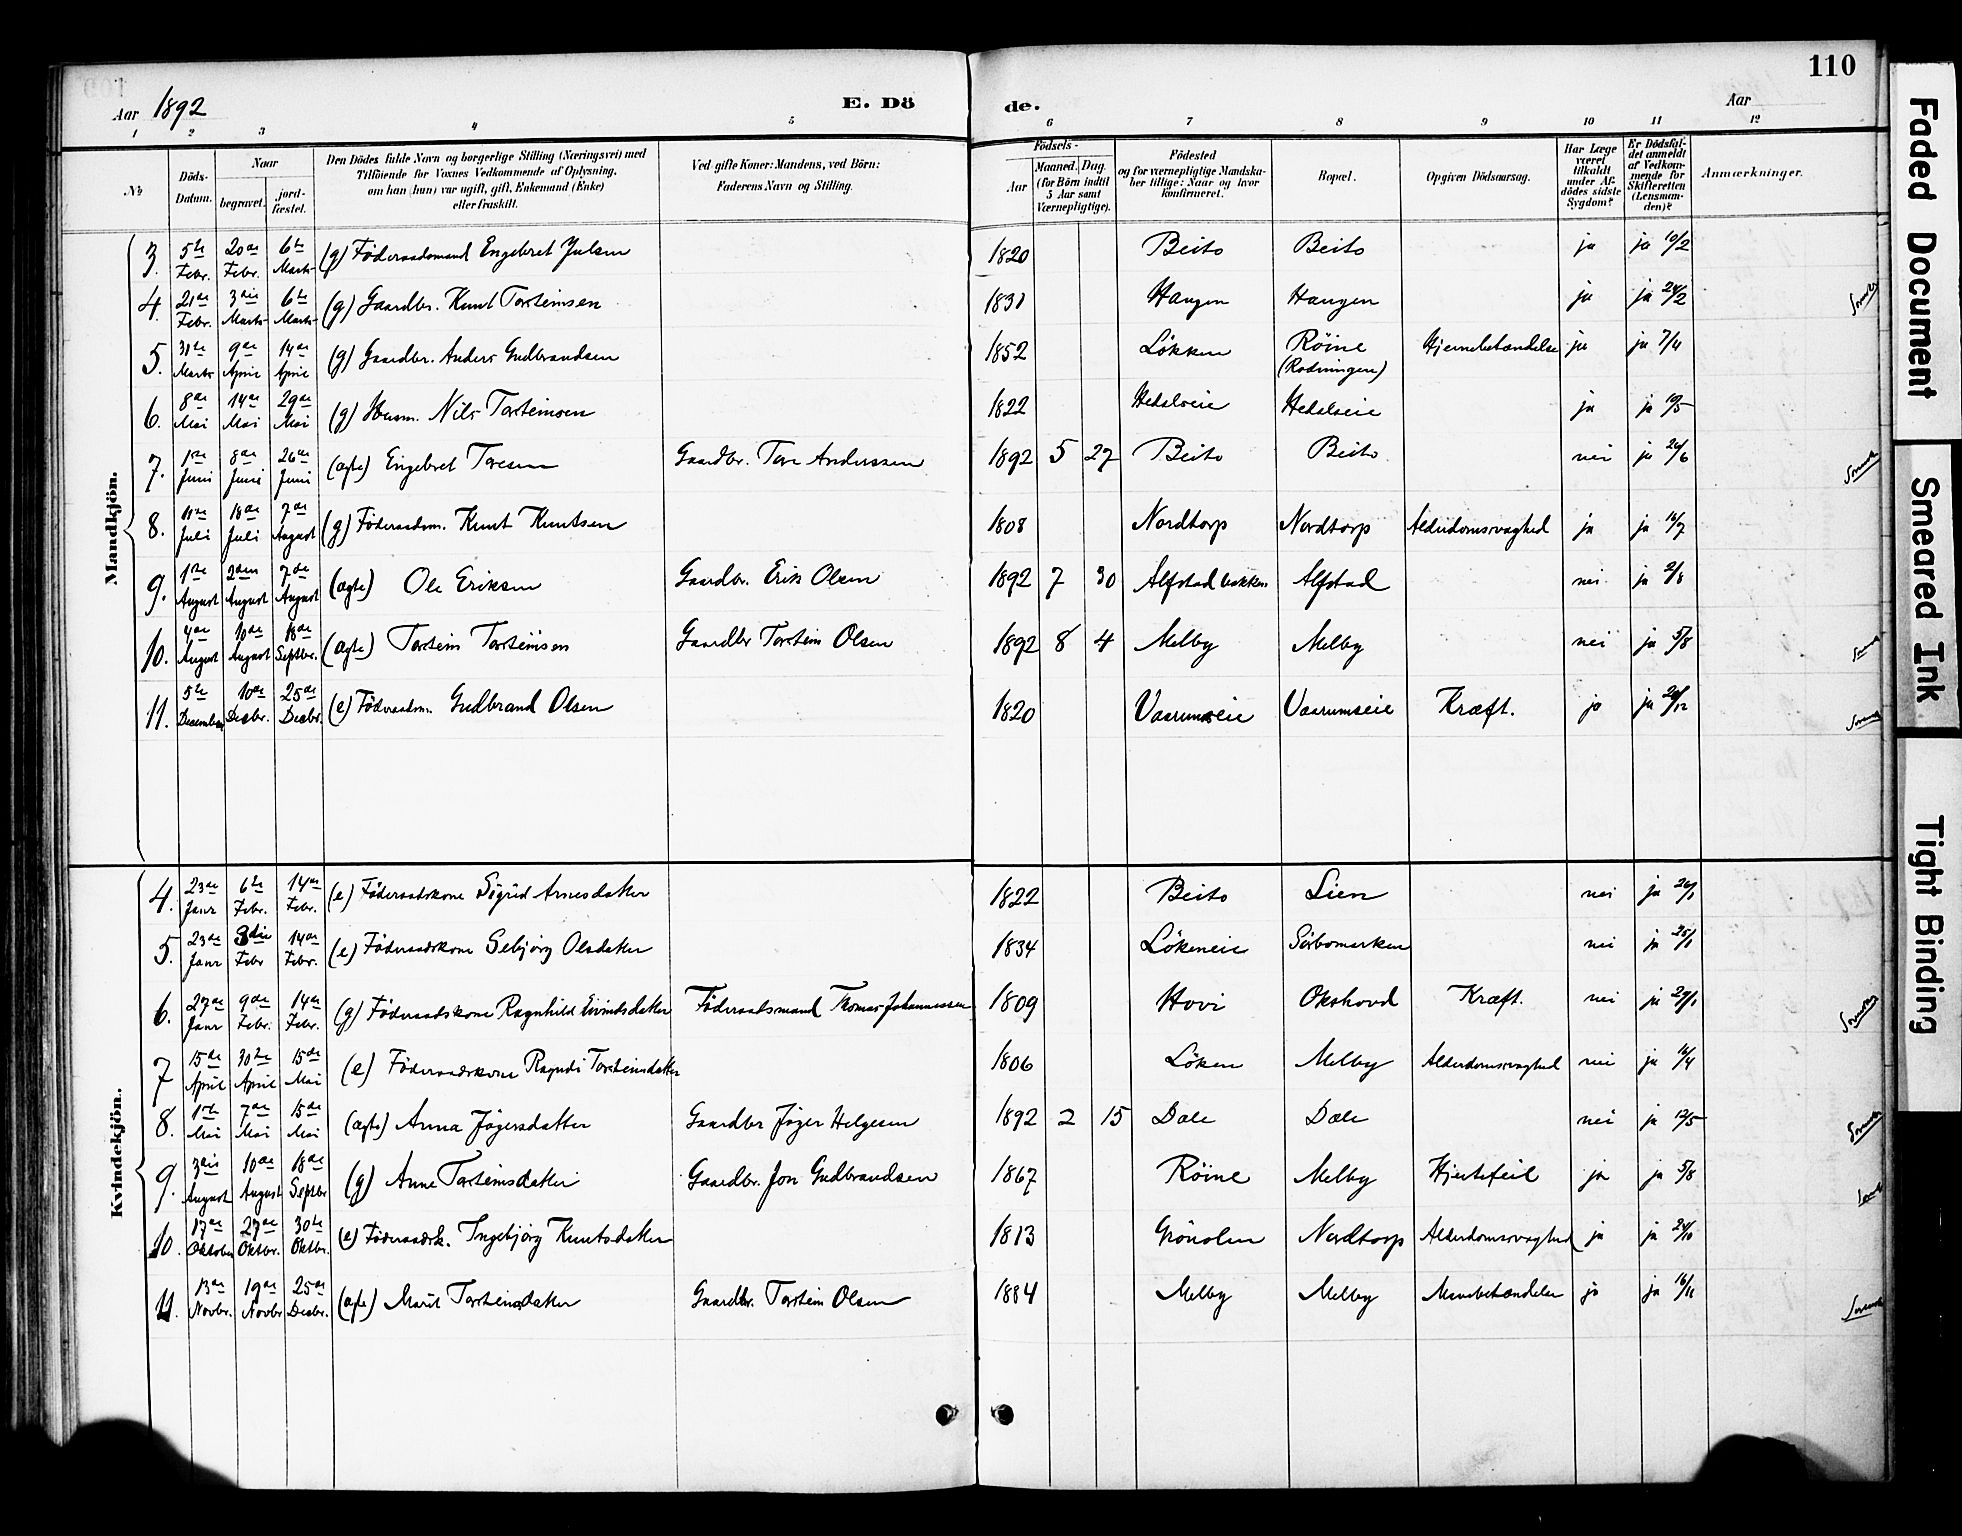 110
Aar 1892 E. Dö de. Aar
1 2 3 4 5 6 7 8 9 10 11 12
№
Döds-Datum.
Naar
begravet.
jord-fæstet.
Den Dödes fulde Navn og borgerlige Stilling (Næringsvei) med
Tilföiende for Voxnes Vedkommende af Oplysning,
om han (hun) var ugift, gift, Enkemand (Enke)
eller fraskilt.
Ved gifte Koner: Mandens, ved Börn:
Faderens Navn og Stilling.
Födsels-
Aar
Maaned. Dag.
(for Börn indtil
5 Aar samt
Værnepligtige).
Födested
og for værnepligtige Mandska-
ber tillige: Naar og hvor
konfirmeret.
Bopæl.
Opgiven Dödsaarsag.
Har Læge
været
tilkaldt
under Af-
dödes sidste
Sygdom?
Er Dödsfal-
det anmeldt
af Vedkom-
mende for
Skifteretten
(Lensman-
den)?
Anmærkninger.
Mandkjön.
3. 5te Febr. 20de Febr. 6te Marts (g) Föderaadsmand Engebret Julsen 1820 Beito Beito ja ja 10/2
4. 21de Febr. 3die Marts 6te Marts (g) Gaardbr. Knut Torsteinsen 1831 Haugen Haugen ja ja 24/2
5. 31te Marts 9de April 14de April (g) Gaardbr. Anders Gudbrandsen 1852 Lökken Röine (Rodningen) Hjernebetændelse ja ja 7/4
6. 8de Mai 14de Mai 29de Mai (g) Husm. Nils Torsteinsen 1822 Hedalseie Hedalseie ja ja 10/5
7. 1ste Juni 8de Juni 26de Juni (ægte) Engebret Toresen Gaardbr. Tore Anderssen 1892 5 27 Beito Beito nei ja 24/6
8. 11te Juli 18de Juli 7de August (g) Föderaadsm. Knut Knutsen 1808 Nordtorp Nordtorp Alderdomssvaghed ja ja 16/7
9. 1ste August 2den August 7de August (ægte) Ole Eriksen Gaardbr. Erik Olsen 1892 7 30 Alfstad bakken Alfstad nei ja 2/8
10. 4de August 10de August 18de Septbr. (ægte) Torstein Torsteinsen Gaardbr Torstein Olsen 1892 8 4 Melby Melby nei ja 5/8
11. 5te December 10de Decbr. 25de Decbr (e) Föderaadm. Gudbrand Olsen 1820 Vaarumseie Vaarumseie Kræft. ja ja 20/12
Kvindekjön.
4. 23de Janr 6te Febr. 14de Febr. (e) Föderaadskone Sigrid Arnesdatter 1822 Beito Lien nei ja 26/1
5. 23de Janr 3die Febr 14de Febr. (e) Föderaadskone Sebjörg Olsdatter 1834 Lökeneie Sörbomarken nei ja 25/1
6. 27de Janr 9de Febr. 14de Febr. (g) Föderaadskone Ragnhild Eivindsdatter Föderaadsmand Thomas Johannessen 1809 Hovi Okshovd Kræft. nei ja 29/1
7 15de April 30te April 15de Mai (e) Föderaadskone Ragndi Torsteinsdatter 1806 Löken Melby Alderdomssvaghed nei ja 16/4
8. 1ste Mai 7de Mai 15de Mai (ægte) Anna Jögersdatter Gaardbr Jöger Helgesen 1892 2 15 Dale Dale nei ja 12/5
9. 3die August 10de August 18de Septbr (g) Anne Torsteinsdatter Gaardbr. Jon Gudbrandsen 1867 Röine Melby Hjertefeil ja ja 5/8
10. 17de Oktober 27de Oktbr. 30te Oktbr. (e) Föderaadsk. Ingebjörg Knutsdatter 1813 Grönolen Nordtorp Alderdomssvaghed ja ja 24/10
11. 13de Novbr. 19de Novbr 25de Decbr. (ægte) Marit Torsteinsdatter Gaardbr. Torstein Olsen 1884 Melby Melby ja ja 16/11
Faded Document
Smeared Ink
Tight Binding